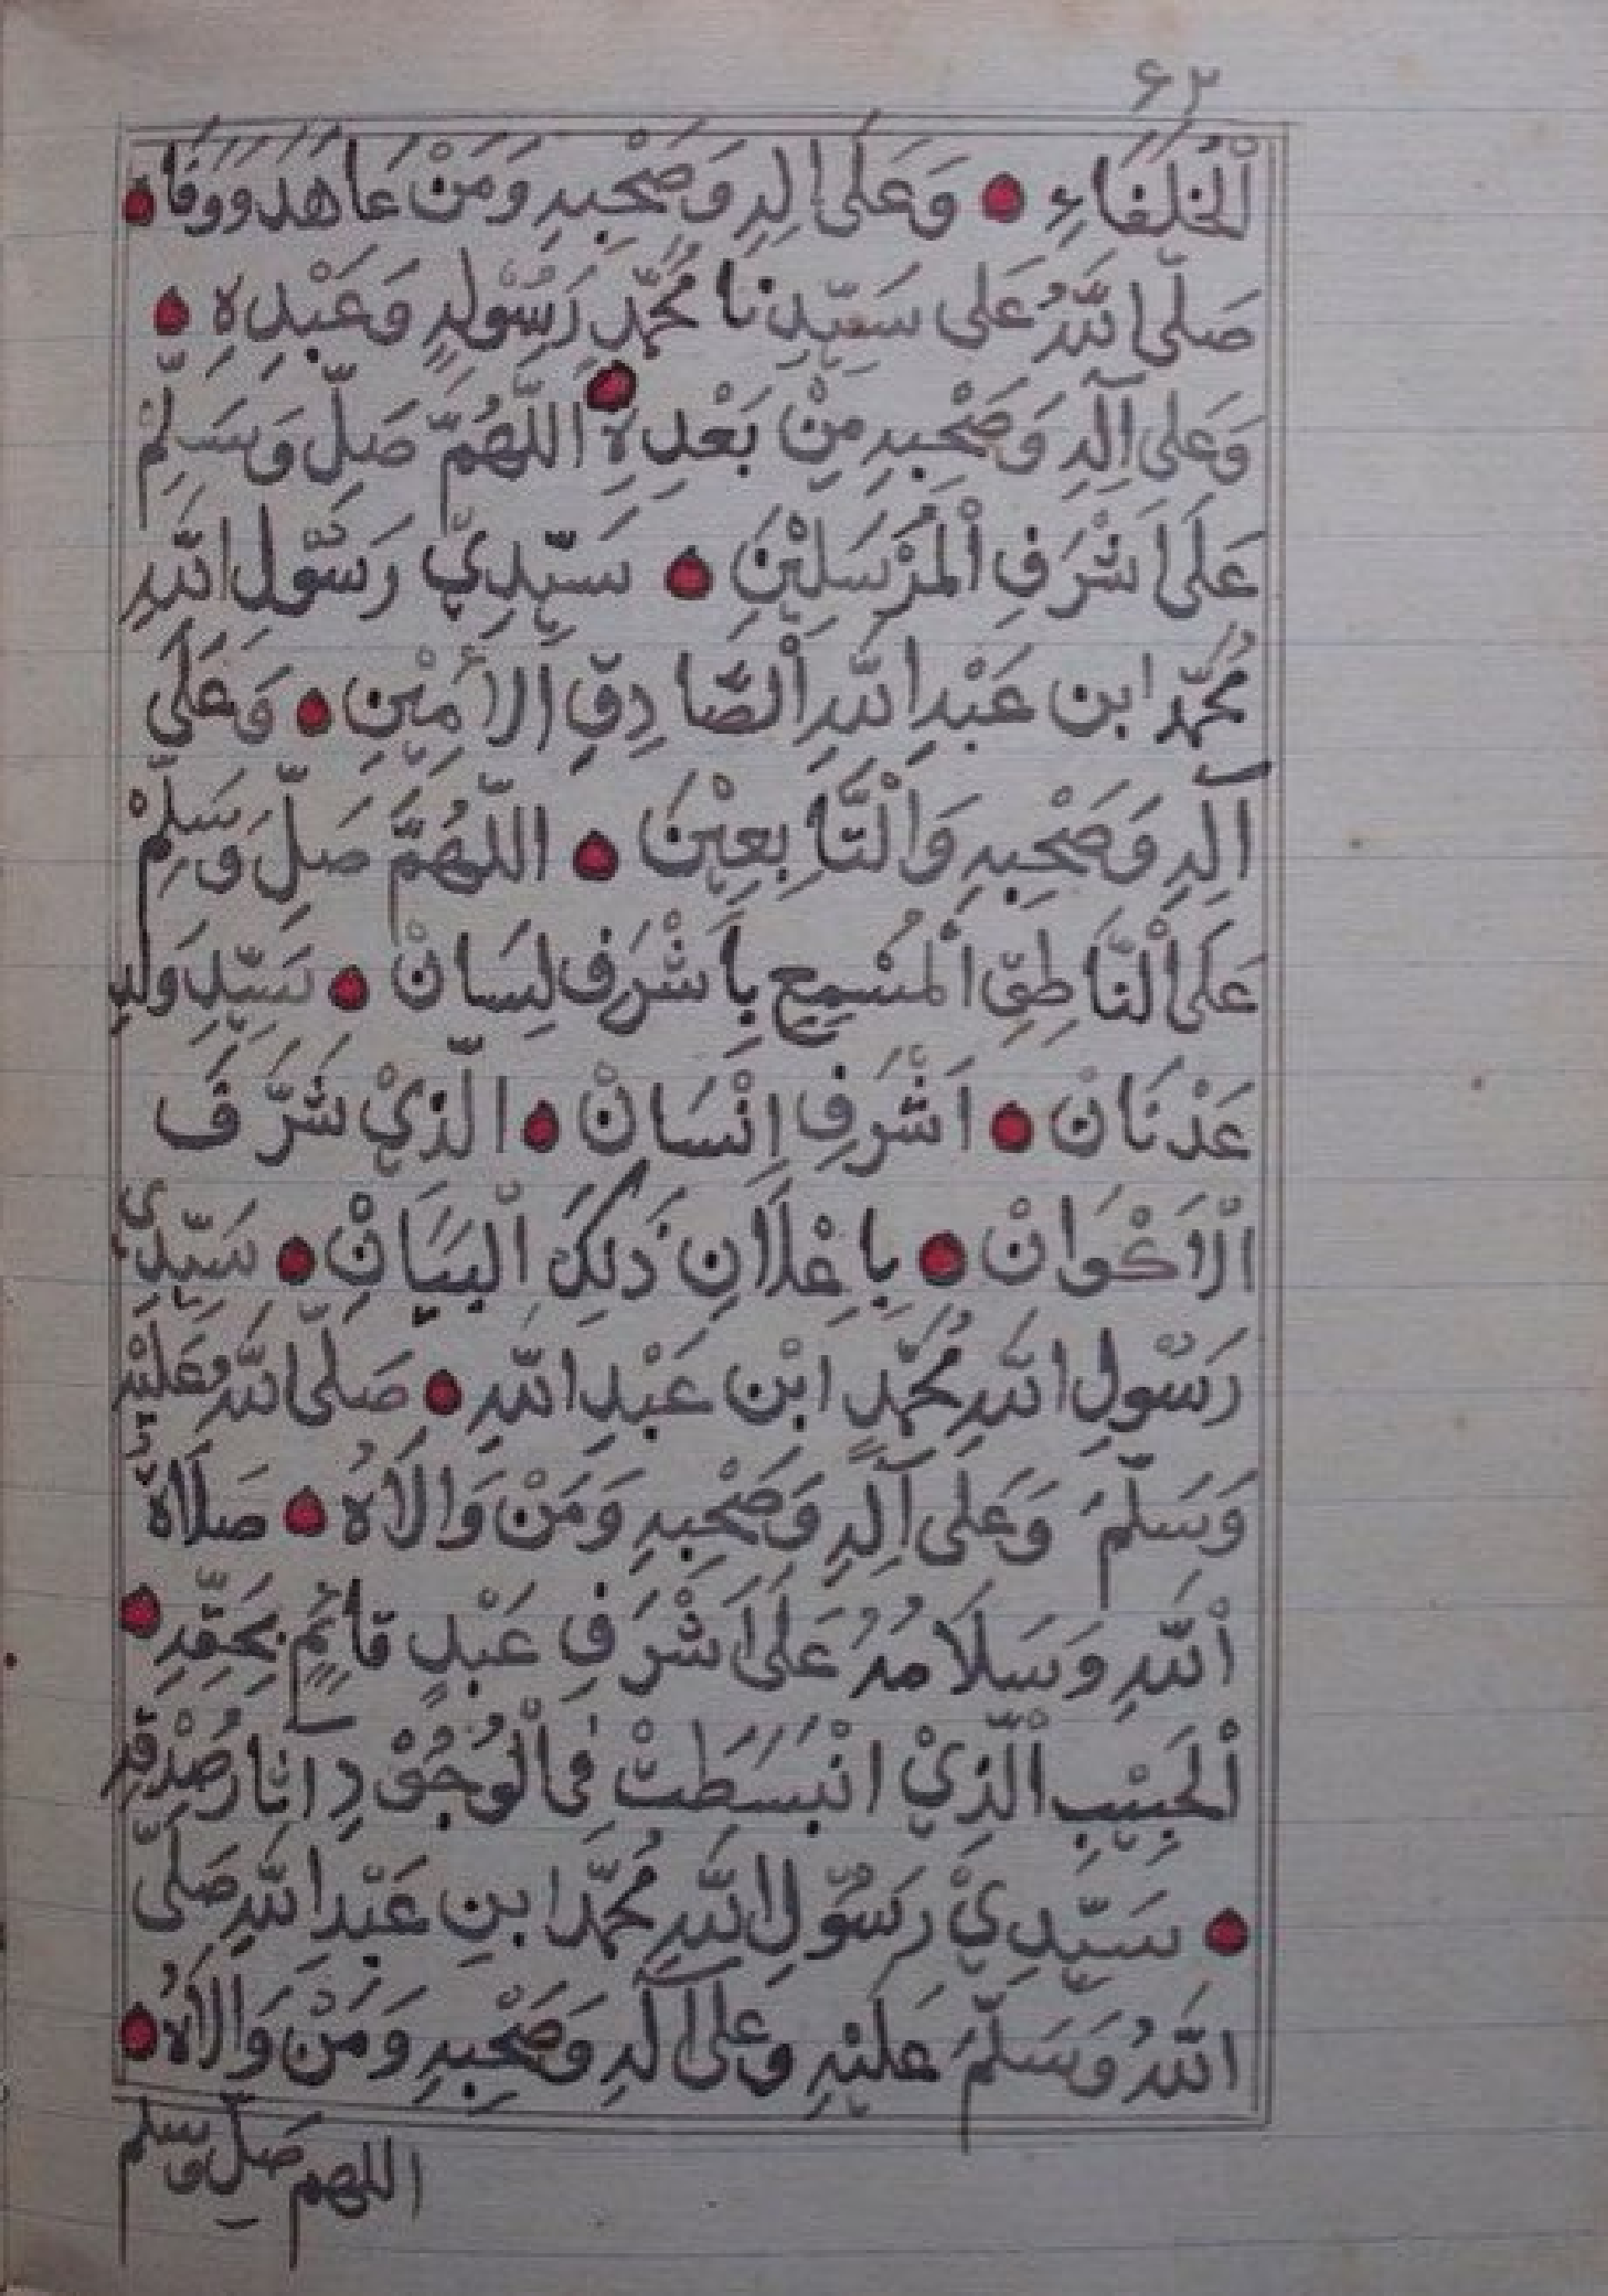 ٦٢
اْلخُلَفَاءِ ۝ وَعَلَى الِهِ وَصَحْبِهِ وَمَنْ عَاهَدَ وَوَفَا ۝
صَلَّى اللّٰهُ عَلى سَيِّدِنَا مُحَمَّدٍ رَسُوْلِهٍ وَعَبْدِهِ ۝
وَعَلى آلِهِ وَصَحْبِهِ مِنْ بَعْدِهِ ۝ اَللّهُمَّ صَلِّ وَسَلِّمْ
عَلَى اَشْرَفِ اْلمُرْسَلِيْنَ ۝ سَيِّدِيْ رَسُوْلِ اللّٰهِ
مُحَمَّد ابن عَبْدِ اللّٰهِ اْلصَّادِقِ اْلاَمِيْنِ ۝ وَعَلَى
آلِهِ وَصَحْبِهِ وَاْلتَّابِعِيْنَ ۝ اللّهُمَّ صَلِّ وَسَلِّمْ
عَلَى اْلنَّاطِقِ اْلمُسْمِعِ بِاَشْرَفِ لِسَانْ ۝ سَيِّدِ وَلَدِ
عَدْنَانْ ۝ اَشْرَفِ اِنْسَانْ ۝ الَّذِيْ شَرَّفَ
اْلاَكْوَانْ ۝ بِاِعْلاَنِ ذَلِكَ اْلبَيَانْ ۝ سَيِّدِي
رَسُوْلِ اللّٰهِ مُحَمَّدٍ ابْن عَبْدِ اللّٰهِ ۝ صَلَّى اللّٰهُ عَلَيْهِ
وَسَلَّمَ وَعَلى آلِهِ وَصَحْبِهِ وَمَنْ وَالاَهُ ۝ صَلاَةُ
اْللّٰهِ وَسَلاَمُهُ عَلَى اَشْرَفِ عَبْدٍ قَائِمٍ بِحَقِّهِ ۝
اْلحَبِيْبِ اْلَّذِيْ انْبَسَطَتْ فِى اْلوُجُوْدِ اَنَارُ صِدْقِهِ
۝ سَيِّدِيْ رَسُوْلِ اللّٰهِ مُحَمَّد ابنِ عَبْدِ اللّٰهِ صَلَّى
اللّٰهُ وَسَلَّمَ عَلَيْهِ وَعَلى آلِهِ وَصَحْبِهِ وَمَنْ وَالاَهُ ۝
اللهم صَلِّ وسلم